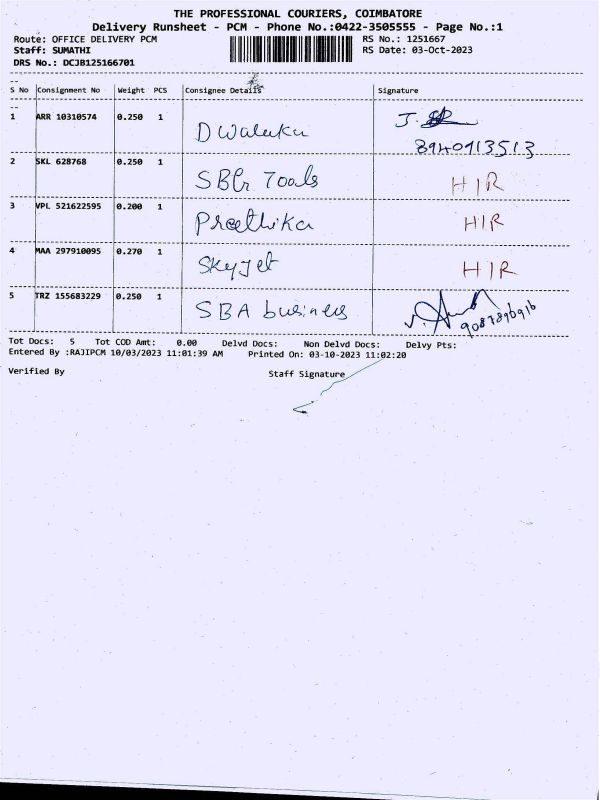 THE PROFESSIONAL COURIERS, COIMBATORE
Delivery Runsheet - PCM - Phone No.:0422-3505555 - Page No.:1
Route: OFFICE DELIVERY PCM RS No.: 1251667
Staff: SUMATHI RS Date: 03-Oct-2023
DRS No.: DCJB125166701
S No Consignment No Weight PCS Consignee Details Signature
1 ARR 10310574 0.250 1 J.
8940913513
2 SKL 628768 0.250 1 SBGr Tools HIR
3 VPL 521622595 0.200 1 Preethika HIR
4 MAA 297910095 0.270 1 Skyjet HIR
5 TRZ 155683229 0.250 1 SBA business
9087896916
Tot Docs: 5 Tot COD Amt: 0.00 Delvd Docs: Non Delvd Docs: Delvy Pts:
Entered By :RAJIPCM 10/03/2023 11:01:39 AM Printed On: 03-10-2023 11:02:20
Verified By Staff Signature